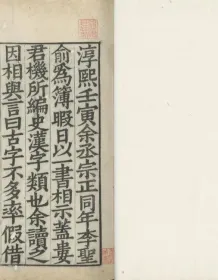 淳熙壬寅余丞宗正同年李聖
俞為簿暇日以一書相示蓋婁
君機所編史漢字類也余讀之
因相與言曰古字不多率假借